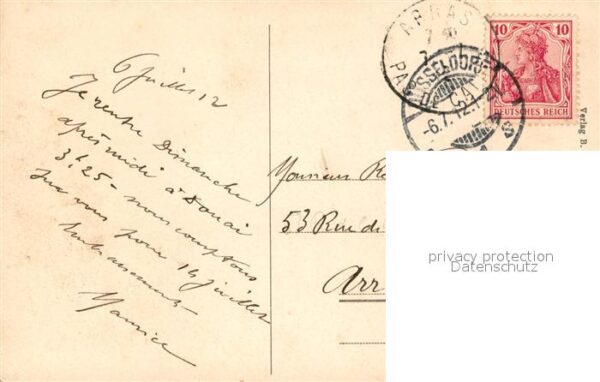 6 Juillet 12
Je rentre Dimanche
après midi à Douai
3h25 – nous comptons
sur vous pour 14 juillet
Embrassements
Maurice
Monsieur
53 Rue de
Arr
ARRAS
7
PA
DÜSSELDORF
-6.7.12.
10 10
DEUTSCHES REICH
Verlag B.
privacy protection
Datenschutz